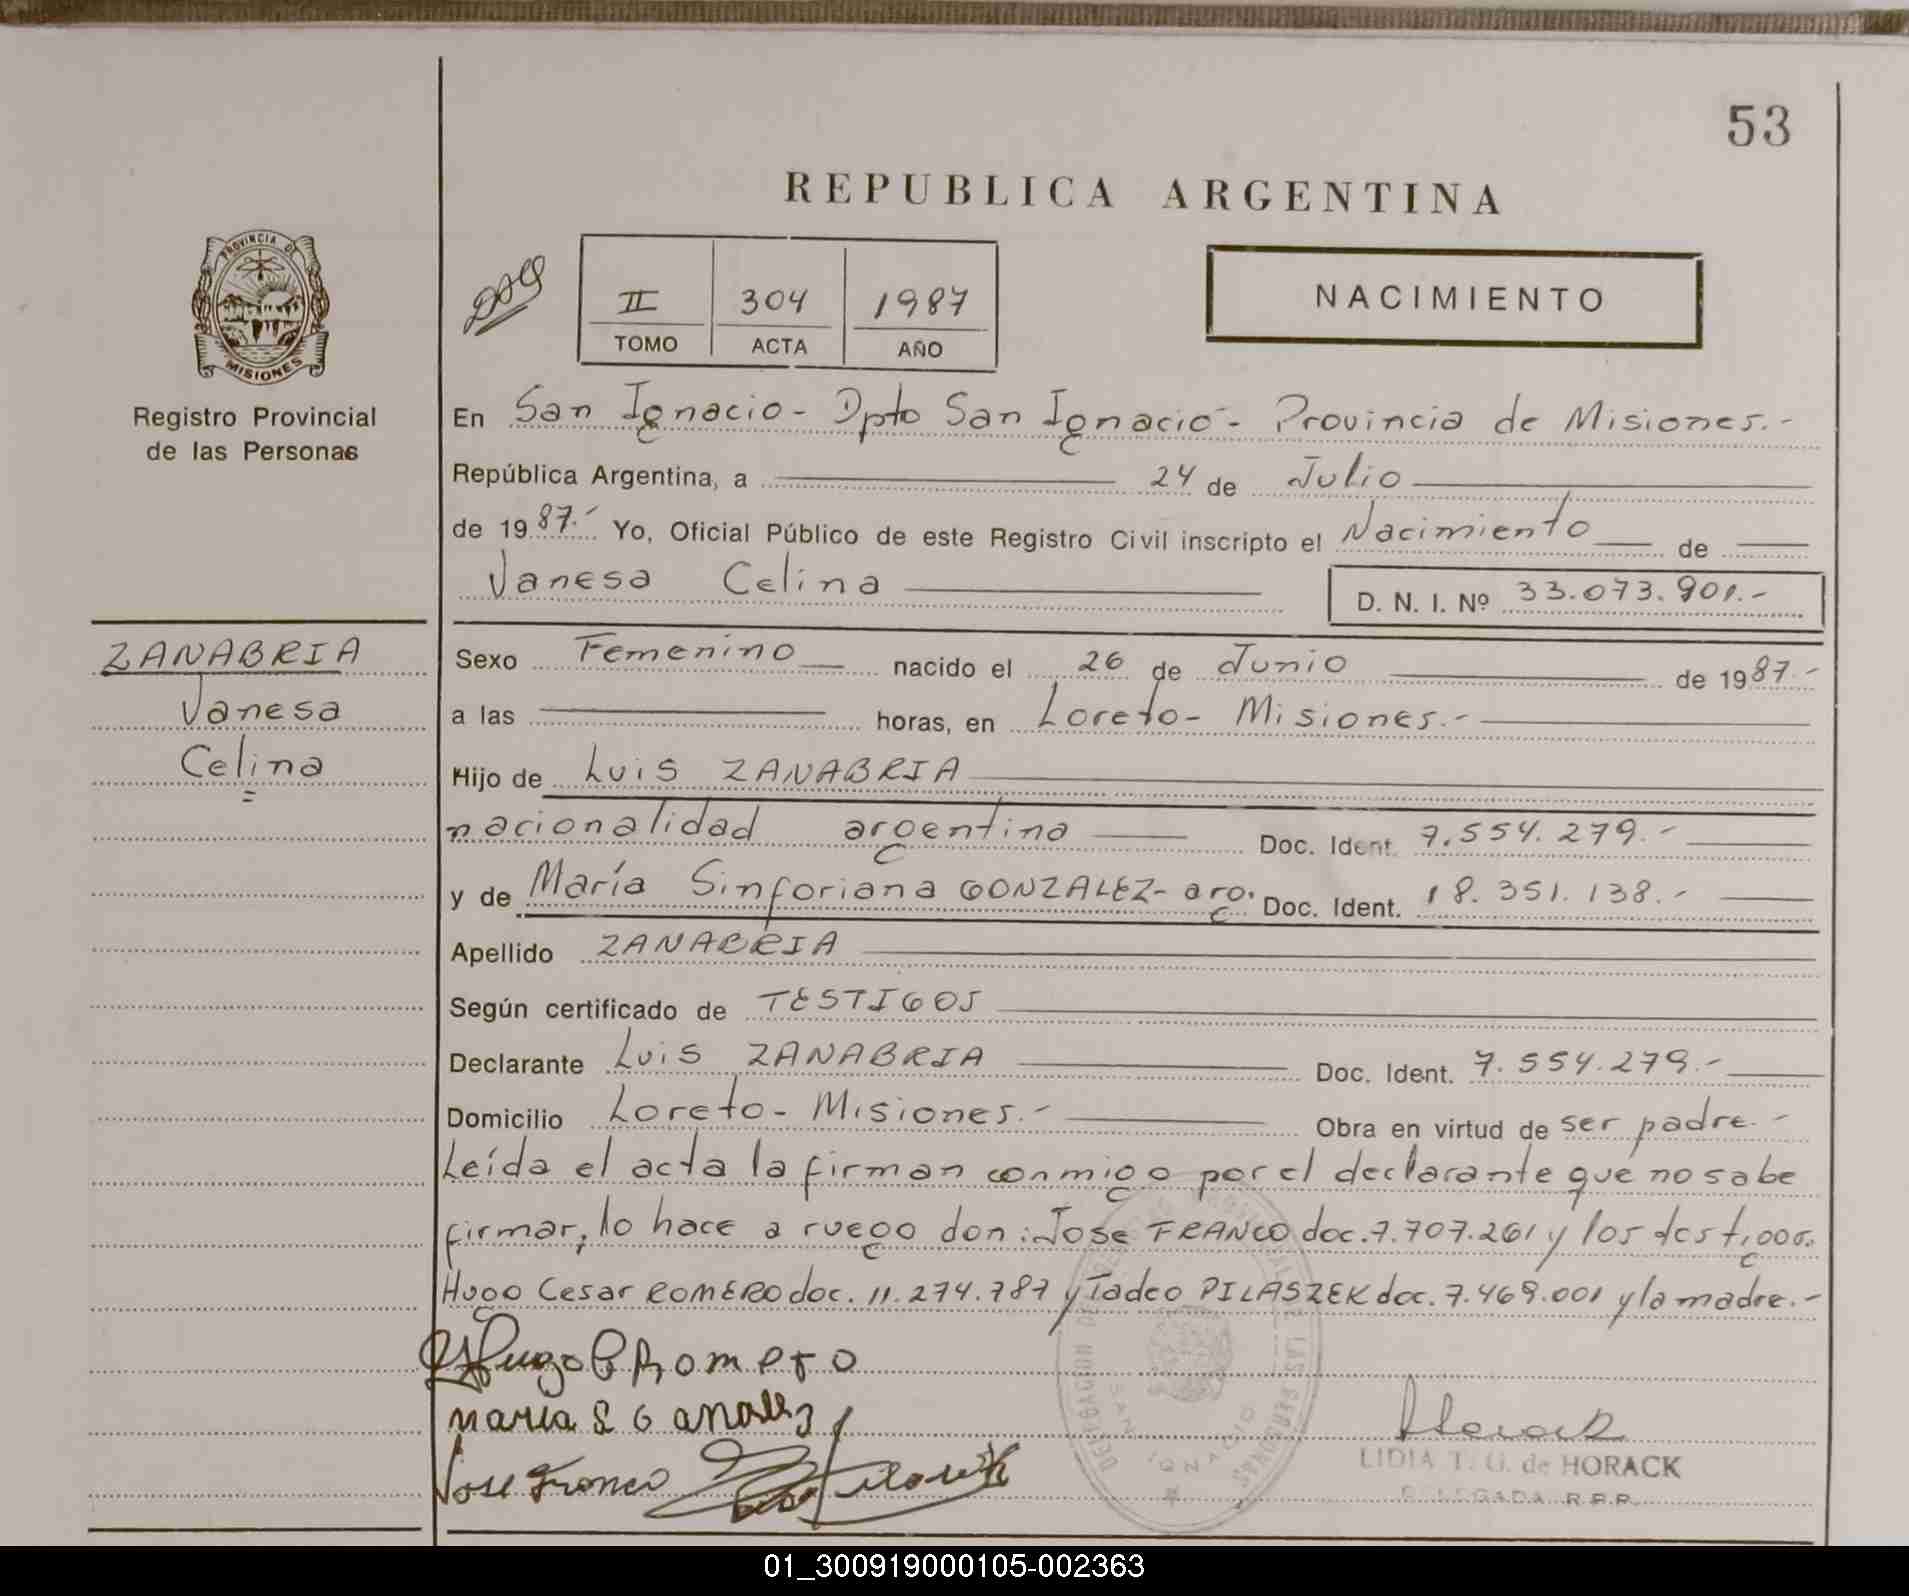 53
REPUBLICA ARGENTINA
PROVINCIA DE
MISIONES
Registro Provincial
de las Personas
II 304 1987
TOMO ACTA AÑO
NACIMIENTO
En San Ignacio - Dpto San Ignacio - Provincia de Misiones.-
República Argentina, a 24 de Julio
de 1987.- Yo, Oficial Público de este Registro Civil inscripto el Nacimiento de
Vanesa Celina D. N. I. Nº 33.073.901.-
ZANABRIA
Vanesa
Celina
Sexo Femenino nacido el 26 de Junio de 1987.-
a las horas, en Loreto - Misiones.-
Hijo de Luis ZANABRIA
nacionalidad argentina Doc. Ident. 7.554.279.-
y de María Sinforiana GONZALEZ - arg. Doc. Ident. 18.351.138.-
Apellido ZANABRIA
Según certificado de TESTIGOS
Declarante Luis ZANABRIA Doc. Ident. 7.554.279.-
Domicilio Loreto - Misiones.- Obra en virtud de ser padre.-
Leída el acta la firman conmigo por el declarante que no sabe
firmar, lo hace a ruego don: Jose FRANCO doc. 7.707.261 y los testigos.
Hugo Cesar ROMERO doc. 11.274.787 y Tadeo PILASZEK doc. 7.469.001 y la madre.-
Hugo C Romero
Maria S G
Jose Franco
DELEGACION DE LAS PERSONAS
SAN IGNACIO
LIDIA T. G. de HORACK
DELEGADA R.P.P.
01_300919000105-002363